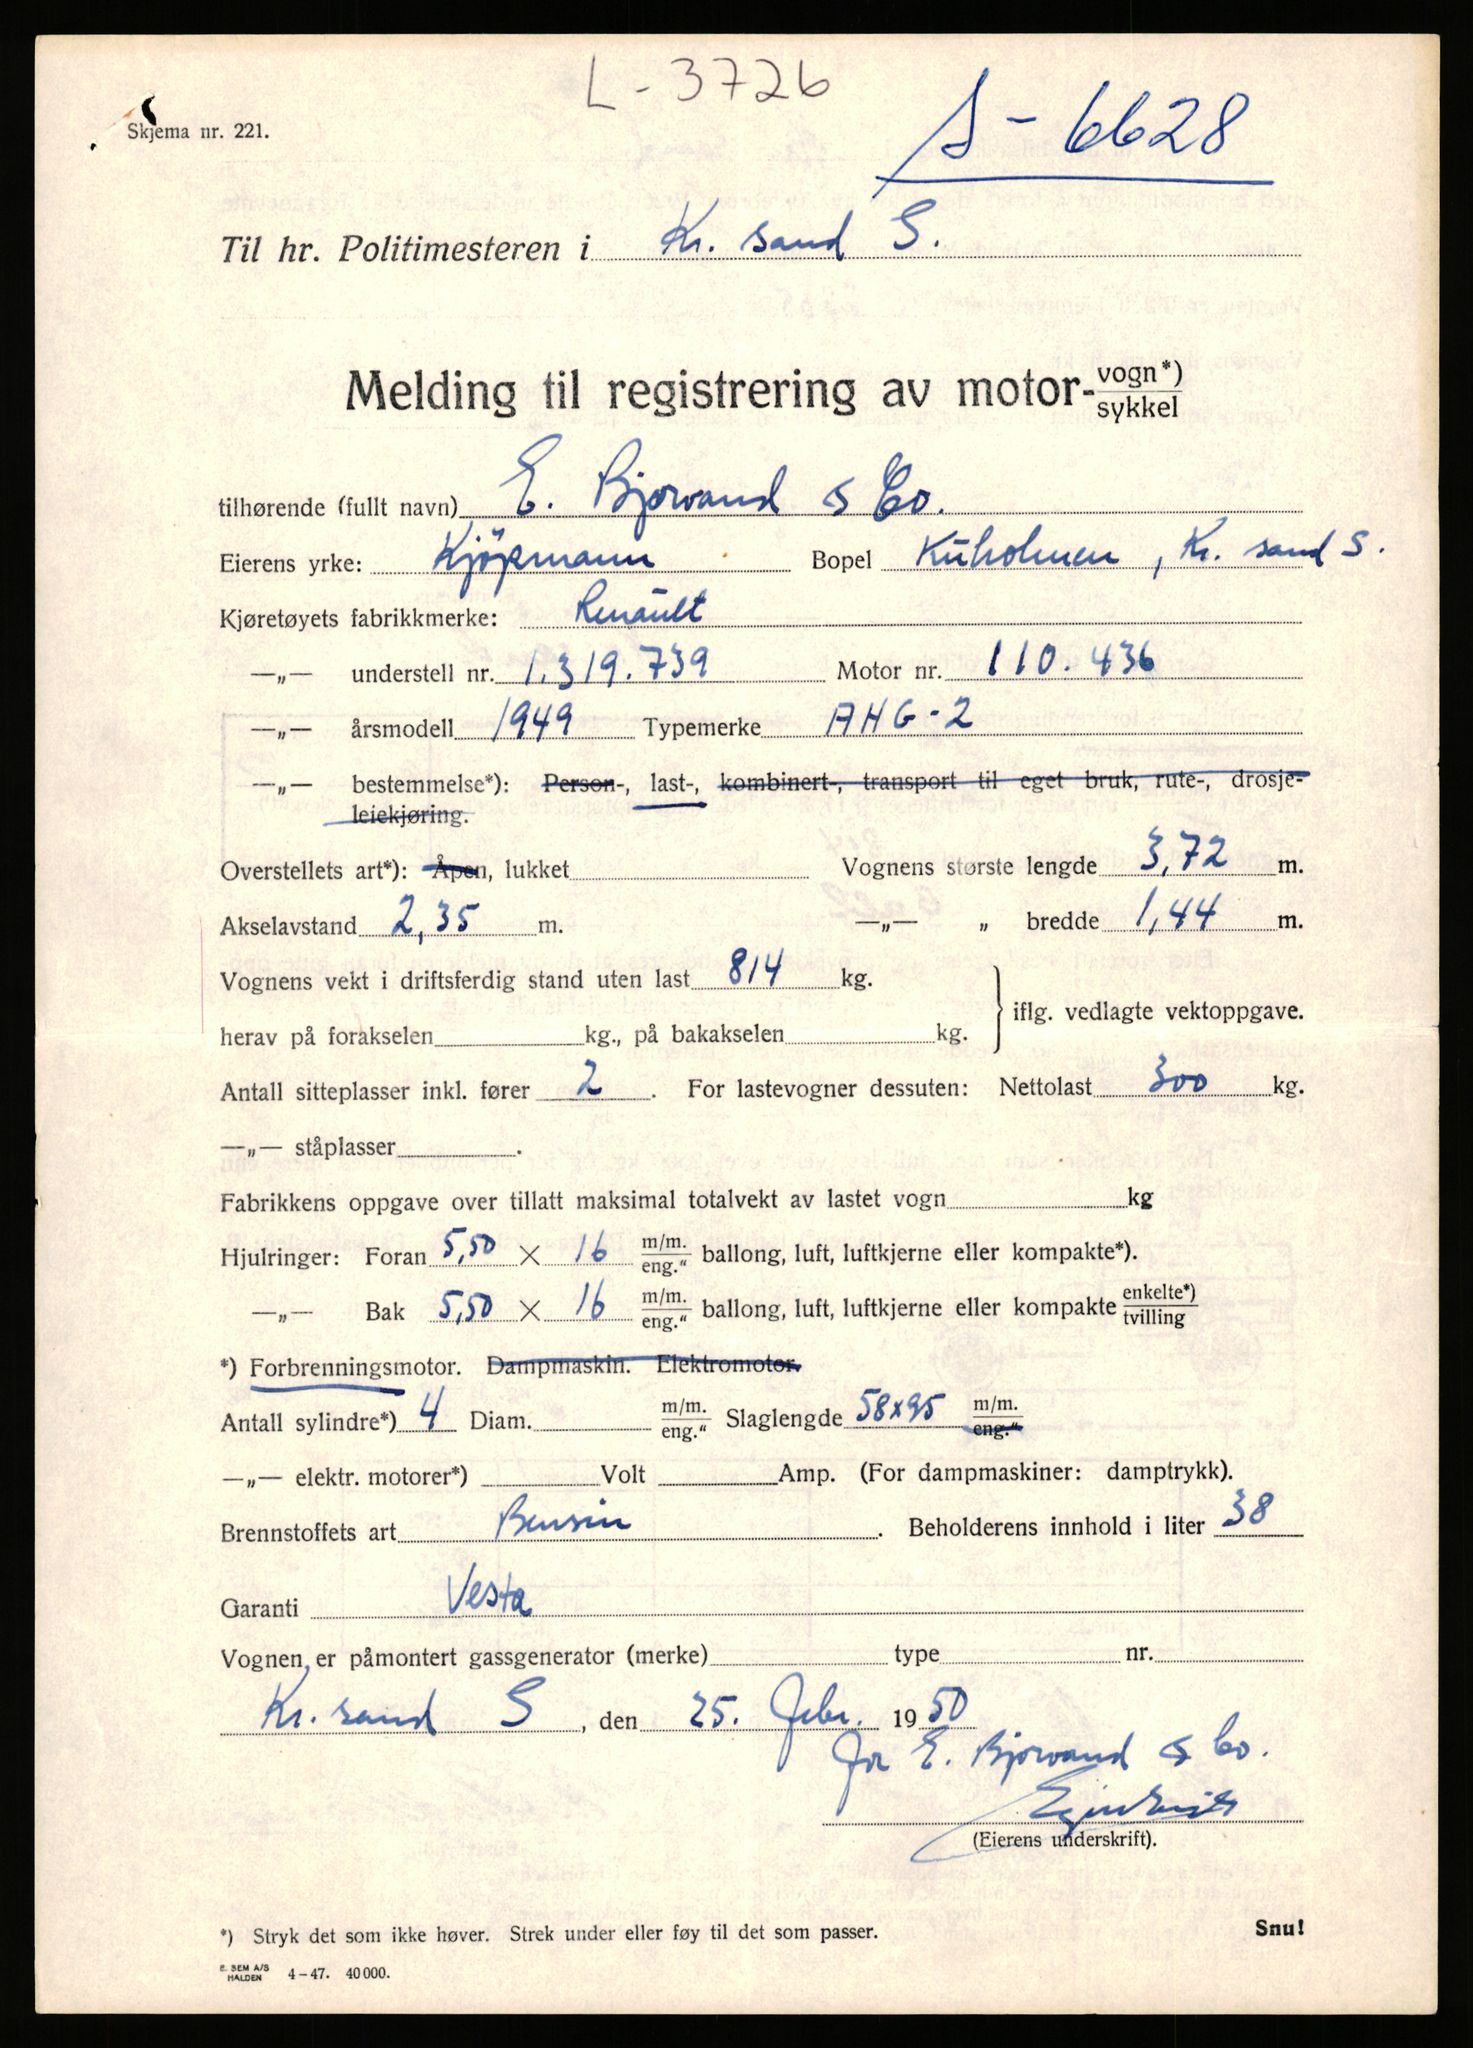 L - 3726
S - 6628
Skjema nr. 221.
Til hr. Politimesteren i Kr. sand S.
Melding til registrering av motor- vogn*) / sykkel
tilhørende (fullt navn) E. Bjorvand & Co.
Eierens yrke: Kjöpmann Bopel Kuholmen, Kr. sand S.
Kjøretøyets fabrikkmerke: Renault
—„— understell nr. 1.319.739 Motor nr. 110.436
—„— årsmodell 1949 Typemerke AHG-2
—„— bestemmelse*): Person-, last-, kombinert-, transport til eget bruk, rute-, drosje-
leiekjøring.
Overstellets art*): Åpen, lukket Vognens største lengde 3,72 m.
Akselavstand 2,35 m. —„— „ bredde 1,44 m.
Vognens vekt i driftsferdig stand uten last 814 kg.
herav på forakselen kg., på bakakselen kg. } iflg. vedlagte vektoppgave.
Antall sitteplasser inkl. fører 2. For lastevogner dessuten: Nettolast 300 kg.
—„— ståplasser .
Fabrikkens oppgave over tillatt maksimal totalvekt av lastet vogn kg
Hjulringer: Foran 5,50 × 16 m/m. / eng." ballong, luft, luftkjerne eller kompakte*).
—„— Bak 5,50 × 16 m/m. / eng." ballong, luft, luftkjerne eller kompakte enkelte*) / tvilling
*) Forbrenningsmotor. Dampmaskin. Elektromotor.
Antall sylindre*) 4 Diam. m/m. / eng." Slaglengde 58x95 m/m. / eng."
—„— elektr. motorer*) Volt Amp. (For dampmaskiner: damptrykk).
Brennstoffets art Bensin. Beholderens innhold i liter 38
Garanti Vesta
Vognen er påmontert gassgenerator (merke) type nr.
Kr. sand S, den 25. Febr. 1950
for E. Bjorvand & Co.
(Eierens underskrift).
*) Stryk det som ikke høver. Strek under eller føy til det som passer.
Snu!
E. SEM A/S
HALDEN 4-47. 40 000.